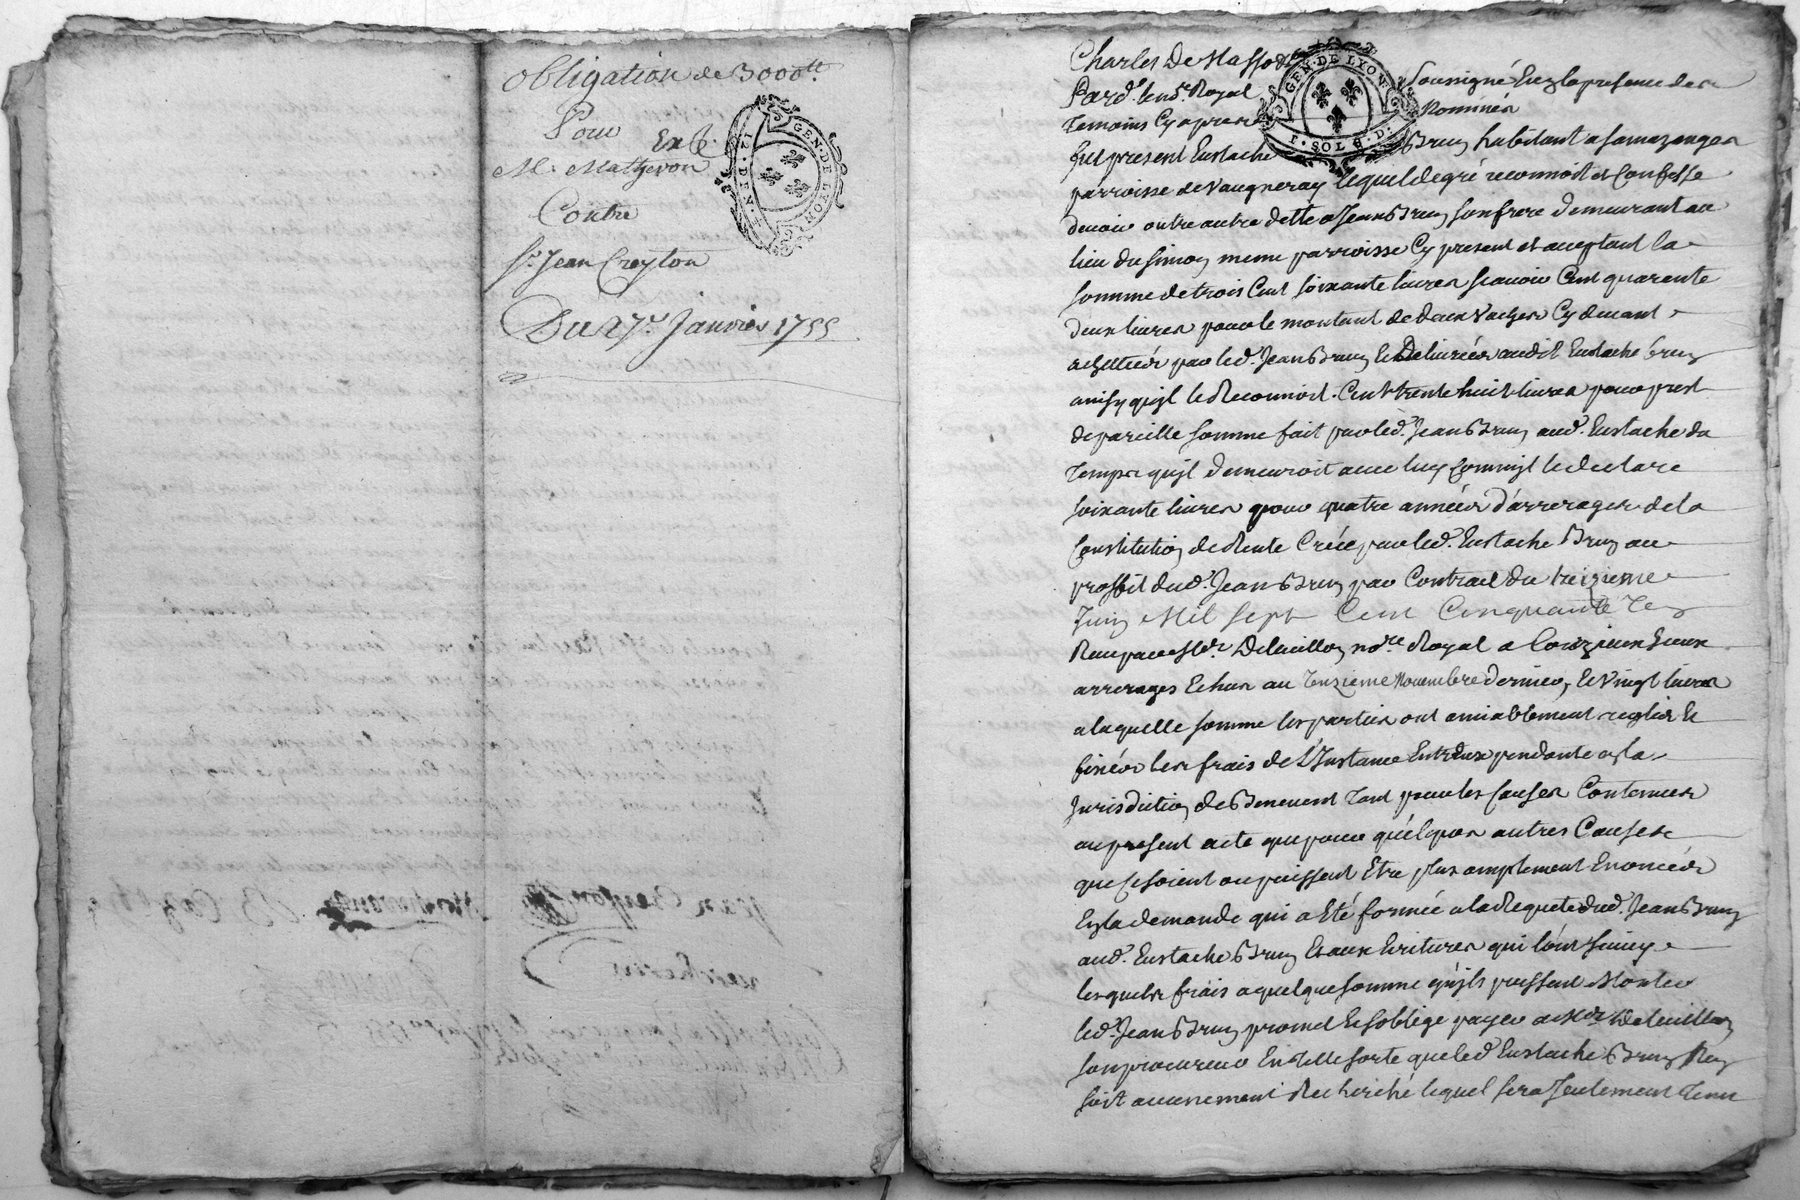 obligation de 3000tt
Pour
Exp.
Me. Mathevon
Contre
Sr. Jean Creyton
Du 27e. Janvier 1755
GEN. DE LYON
Charles De Masso
Pard. le no.re Royal Soussigné En la presence des
temoins Cy apres Nommés
GEN. DE LYON
1. SOL 8. D.
fut present Eustache Brun habitant a
parroisse de Vaugneray lequel de gré reconnoit et Confesse
devoir outre autre dette a Jean Brun son frere demeurant au
lieu du Simon meme parroisse Cy present et acceptant la
somme de trois Cent soixante livres scavoir Cent quarente
deux livres pour le montant de deux Vaches Cy devant
achettées par led. Jean Brun et Delivrées audit Eustache brun
ainsy qu'il le Reconnoit. Cent trente huit livres pour prest
de pareille somme fait par led. Jean Brun aud. Eustache du
temps qu'il demeuroit avec luy comm'il le declare
soixante livres pour quatre années d'arrerages de la
Constitution de Rente Créée par led. Eustache Brun au
proffit dud. Jean Brun par Contrat du treizieme
Juin Mil Sept Cent Cinquante
Receu par Me. Deleuillon no.re Royal a Courzieux Iceux
arrerages Echus au Novembre dernier, et Vingt livres
a laquelle somme les parties ont amiablement reglés et
fixées les frais de L'Instance Entr'Eux pendante a la
Jurisdiction de Benevent tant pour les Causes Contenues
au present acte que pour quelques autres Causes
que se soient ou puissent Etre plus amplement Enoncées
En la demande qui a Eté formée a la Requete dud. Jean Brun
aud. Eustache Brun Et aux Ecritures qui l'ont Suivy
lesquels frais a quelque somme qu'ils puissent Monter
led. Jean Brun promet et s'oblige payer a Me. Deleuillon
son procureur En telle sorte que led. Eustache Brun N'en
soit aucunement Recherché lequel sera Seulement Tenu